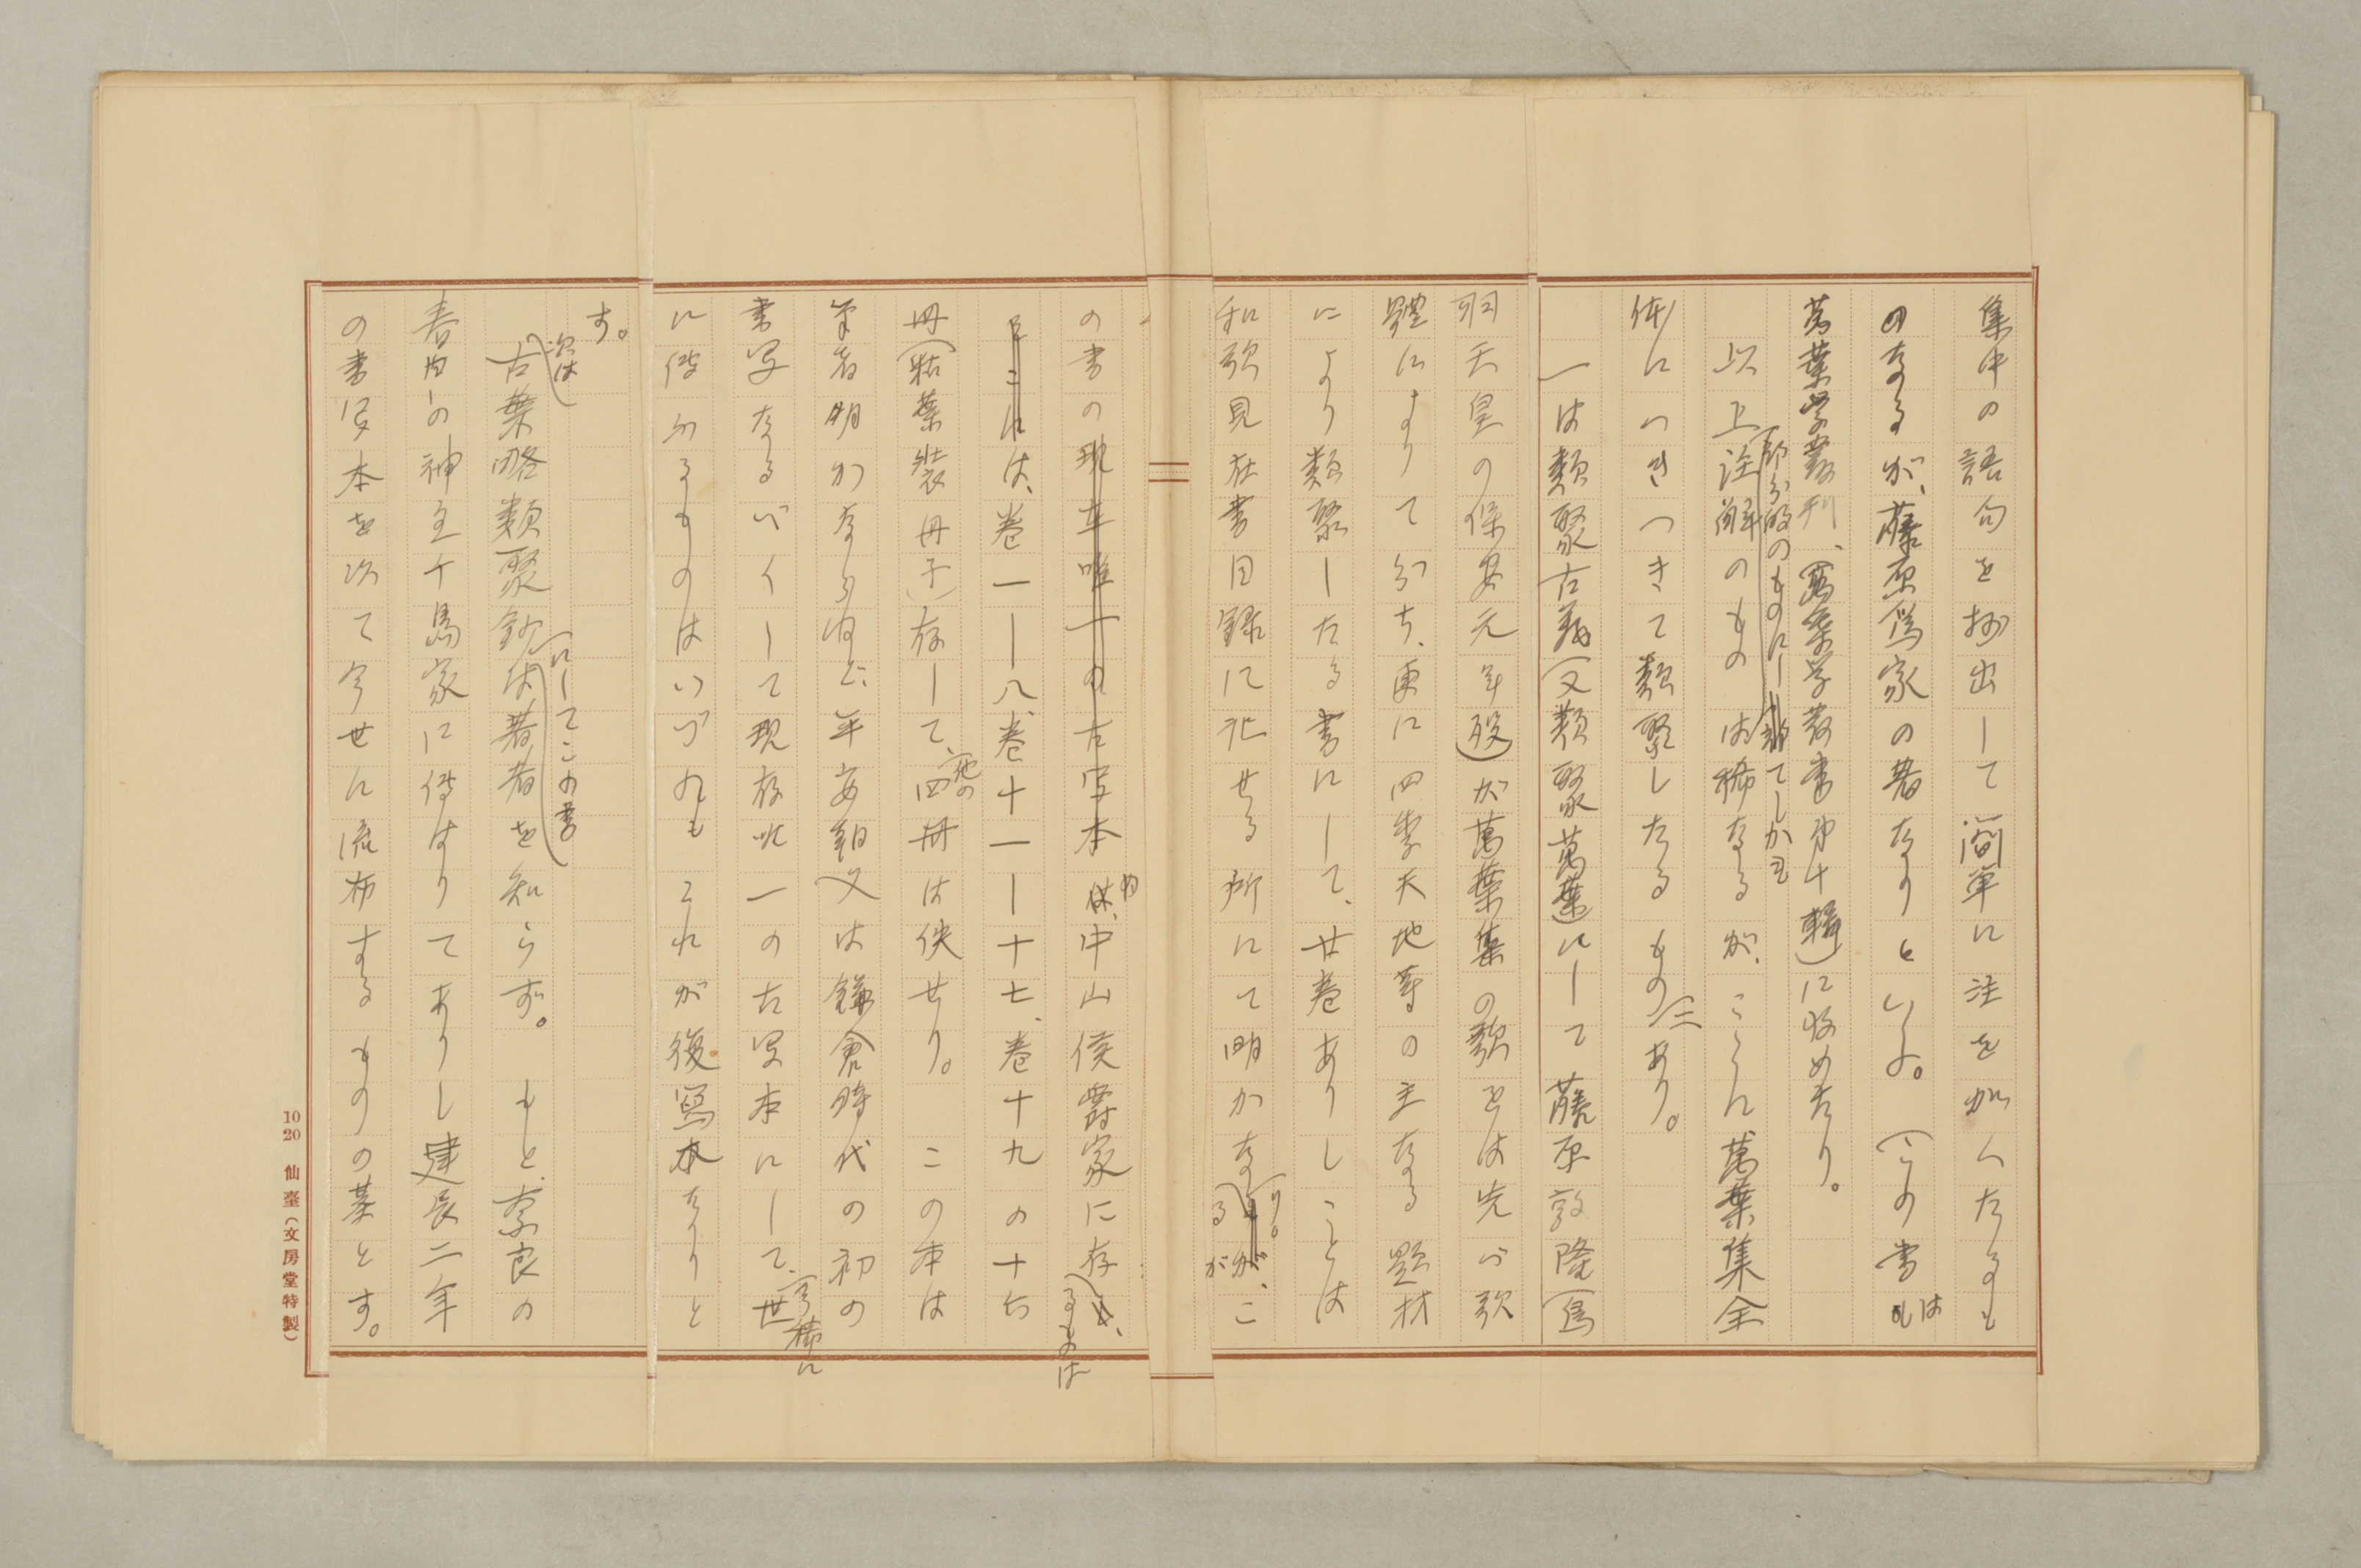 集中の語句を抄出して簡単に注を加へたるも
のなるが、藤原為家の著なりといふ。(この書は
萬葉学叢刊、(萬葉学叢書第十輯)に収めたり。
以上注解のものは稀なるが、こゝに萬葉集全
部分的のものにし てしかも
体にいきつきて類聚したるもの二あり。
一は類聚古義(又類聚萬葉)にして藤原敦隆(鳥
羽天皇の保安元年歿)が萬葉集の歌をは先づ歌
體によりて分ち、更に四季天地等の主なる題材
により類聚したる書にして、廿巻ありしことは
和歌見在書目録に記せる所にて明かなり。るが、こ
の書の現在唯一の古写本は、中山侯爵家に存
るものは
これは、巻一―八、巻十一―十七、巻十九の十六
冊(粘葉装冊子)存して、他の四冊は佚せり。この本は
筆者明かならねど、平安朝又は鎌倉時代の初の
書写なるべくして現存唯一の古写本にして、世
稀に
に傳ふるものはいづれもこれが復寫本なりと
す。
次は
古葉略類聚鈔は著者を知らず。もと、奈良の
にしてこの書
春日の神主千鳥家に傳はりてありし建長二年
の書写本を以て今世に流布するものの基とす。
10 20 仙臺(文房堂特製)